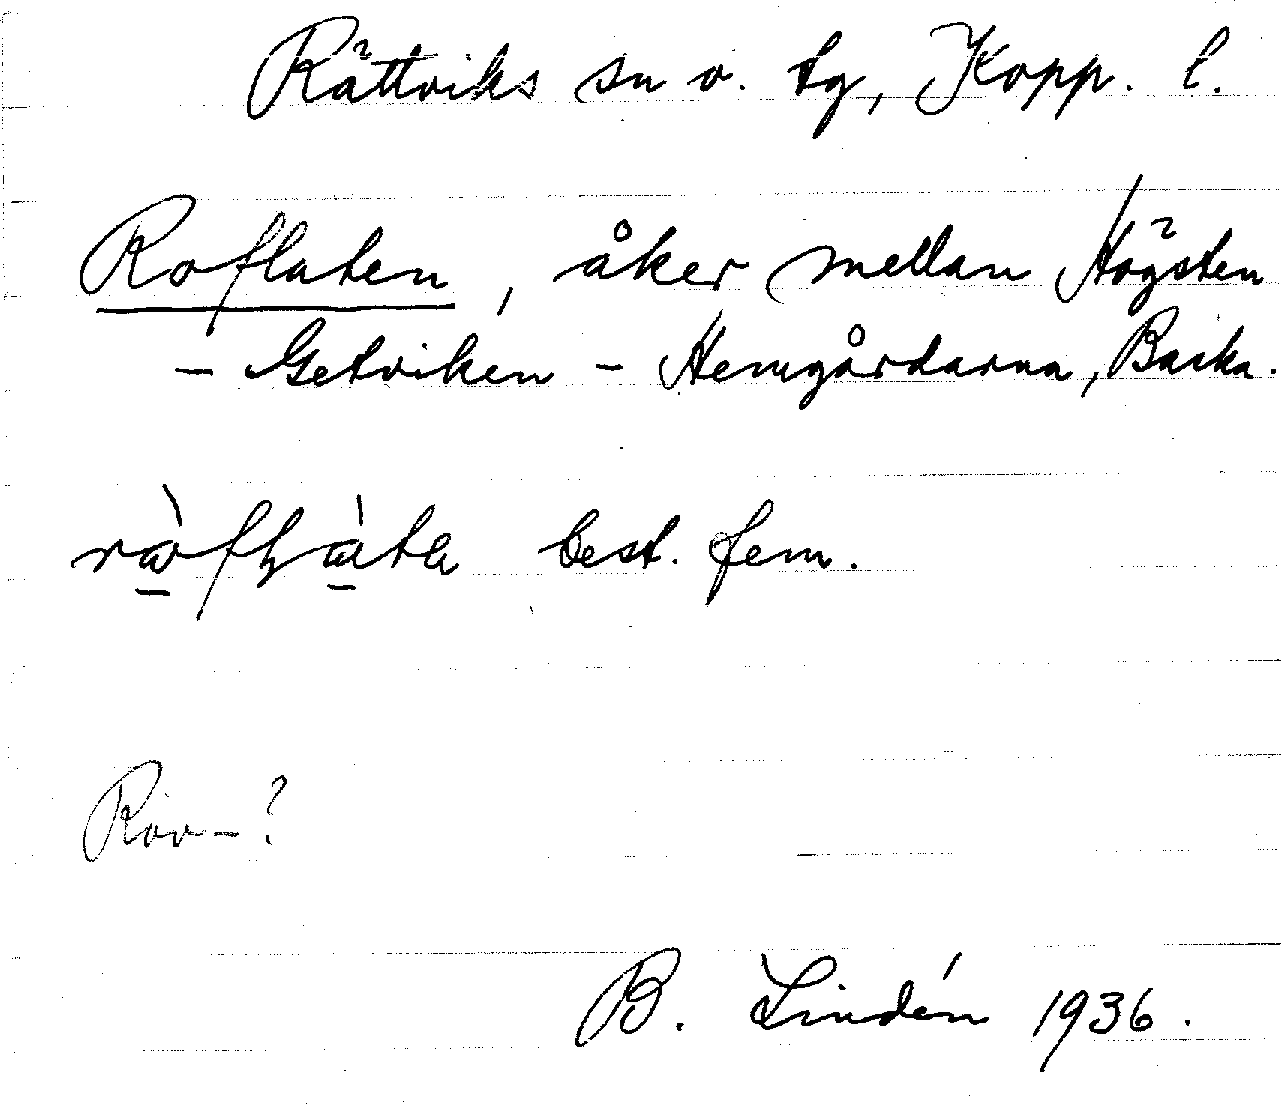 Rättviks sn o. tg, Kopp. l.
Roflaten, åker mellan Högsten
– Getviken – Hemgårdarna, Backa.
best. fem.
Rov-?
B. Lindén 1936.